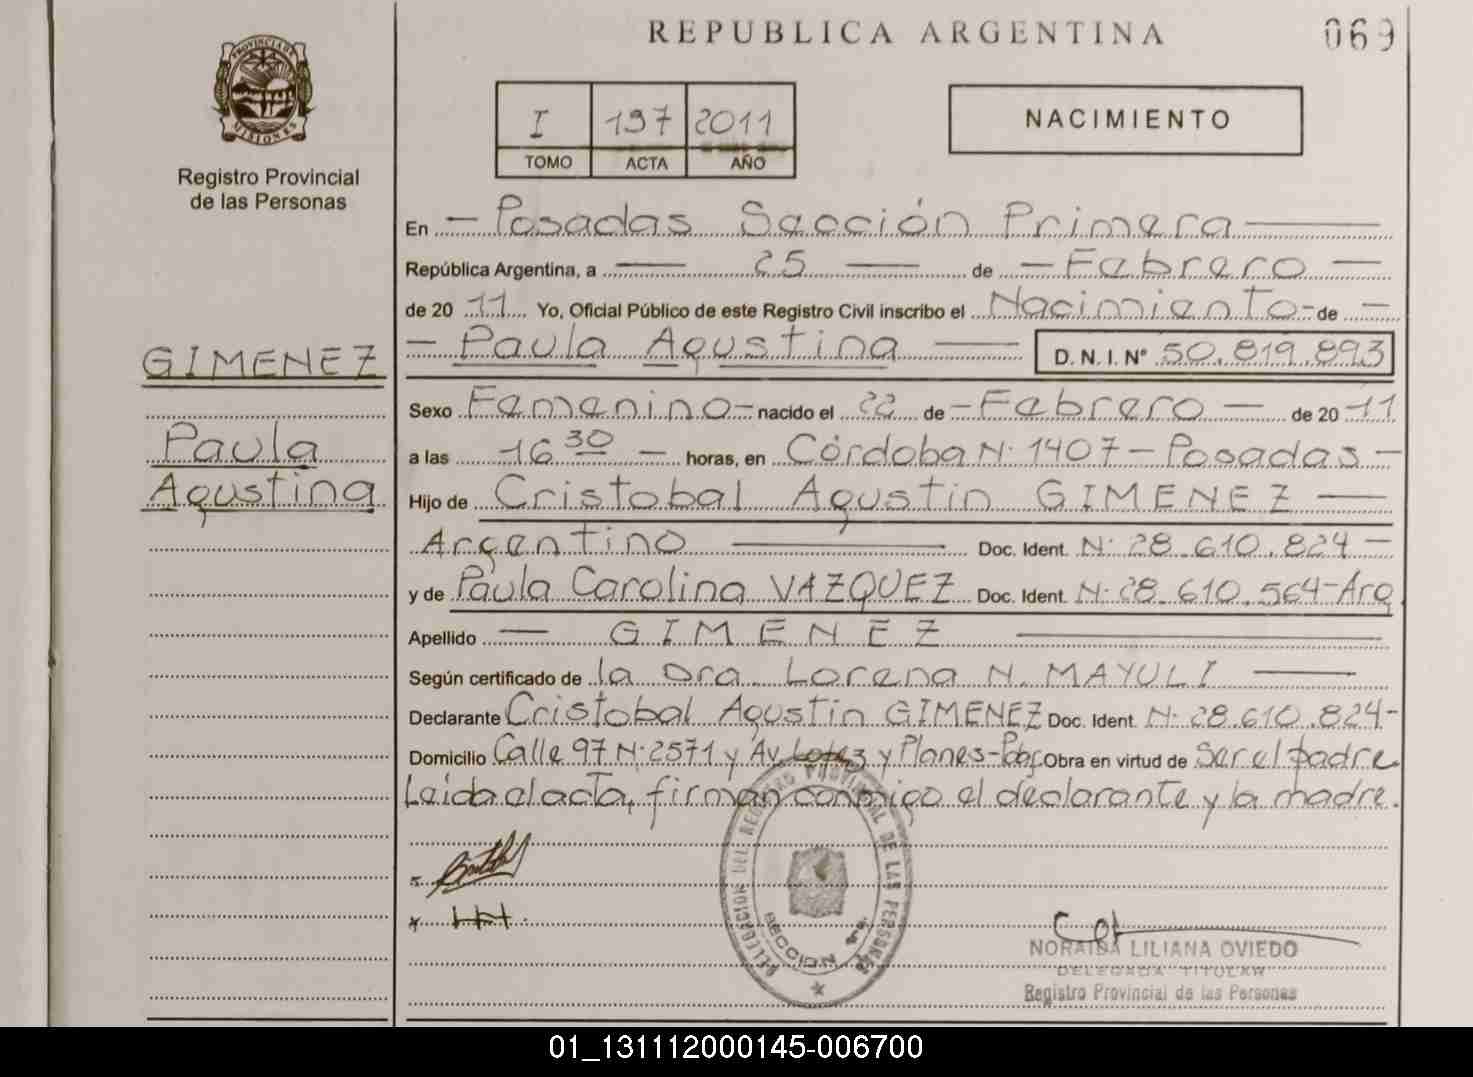 REPUBLICA ARGENTINA
069
PROVINCIA DE MISIONES
Registro Provincial
de las Personas
I 197 2011
TOMO ACTA AÑO
NACIMIENTO
En - Posadas Sección Primera
República Argentina, a 25 de - Febrero -
de 20 11 Yo, Oficial Público de este Registro Civil inscribo el Nacimiento - de -
- Paula Agustina D. N. I. Nº 50.819.893
GIMENEZ
Paula
Agustina
Sexo Femenino - nacido el 22 de - Febrero - de 20 11
a las 16 30 - horas, en Córdoba N· 1407 - Posadas -
Hijo de Cristobal Agustin GIMENEZ
Argentino Doc. Ident. N· 28.610.824 -
y de Paula Carolina VAZQUEZ Doc. Ident. N· 28.610.564-Arg
Apellido - GIMENEZ
Según certificado de la Dra. Lorena N. MAYULI
Declarante Cristobal Agustin GIMENEZ Doc. Ident. N· 28.610.824-
Domicilio Calle 97 N· 2571 y Av. y Planes- Obra en virtud de ser el padre
Leida el acta, firman conmigo el declarante y la madre.
DELEGACION DEL REGISTRO PROVINCIAL DE LAS PERSONAS
SECCION 1ra.
NORAISA LILIANA OVIEDO
DELEGADA TITULAR
Registro Provincial de las Personas
01_131112000145-006700